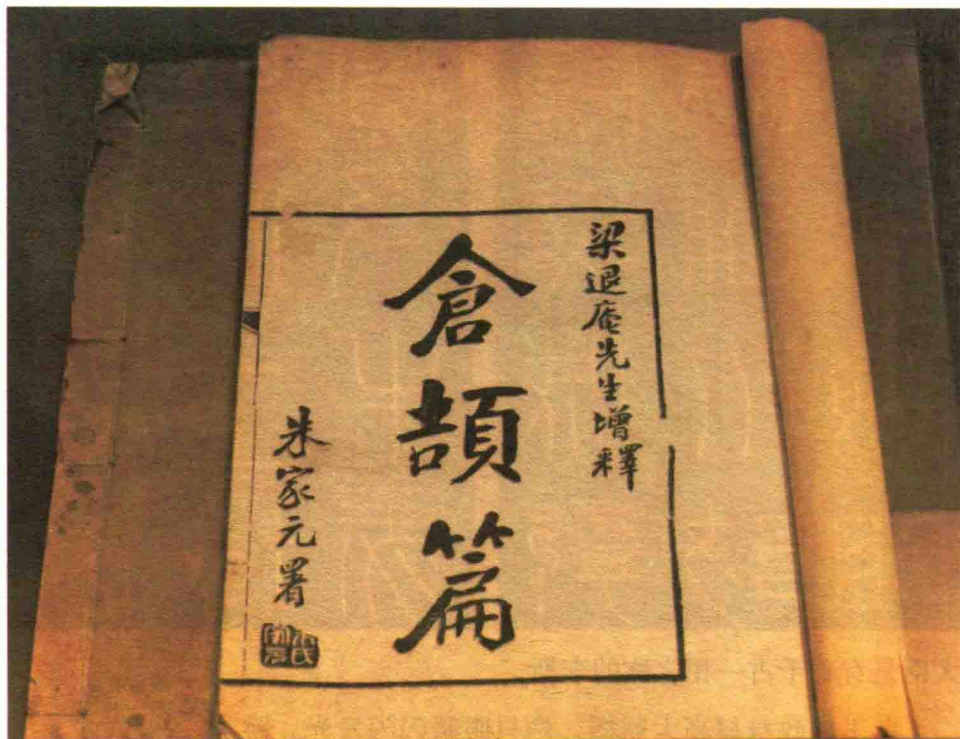 梁退庵先生增釋
倉頡篇
朱家元署